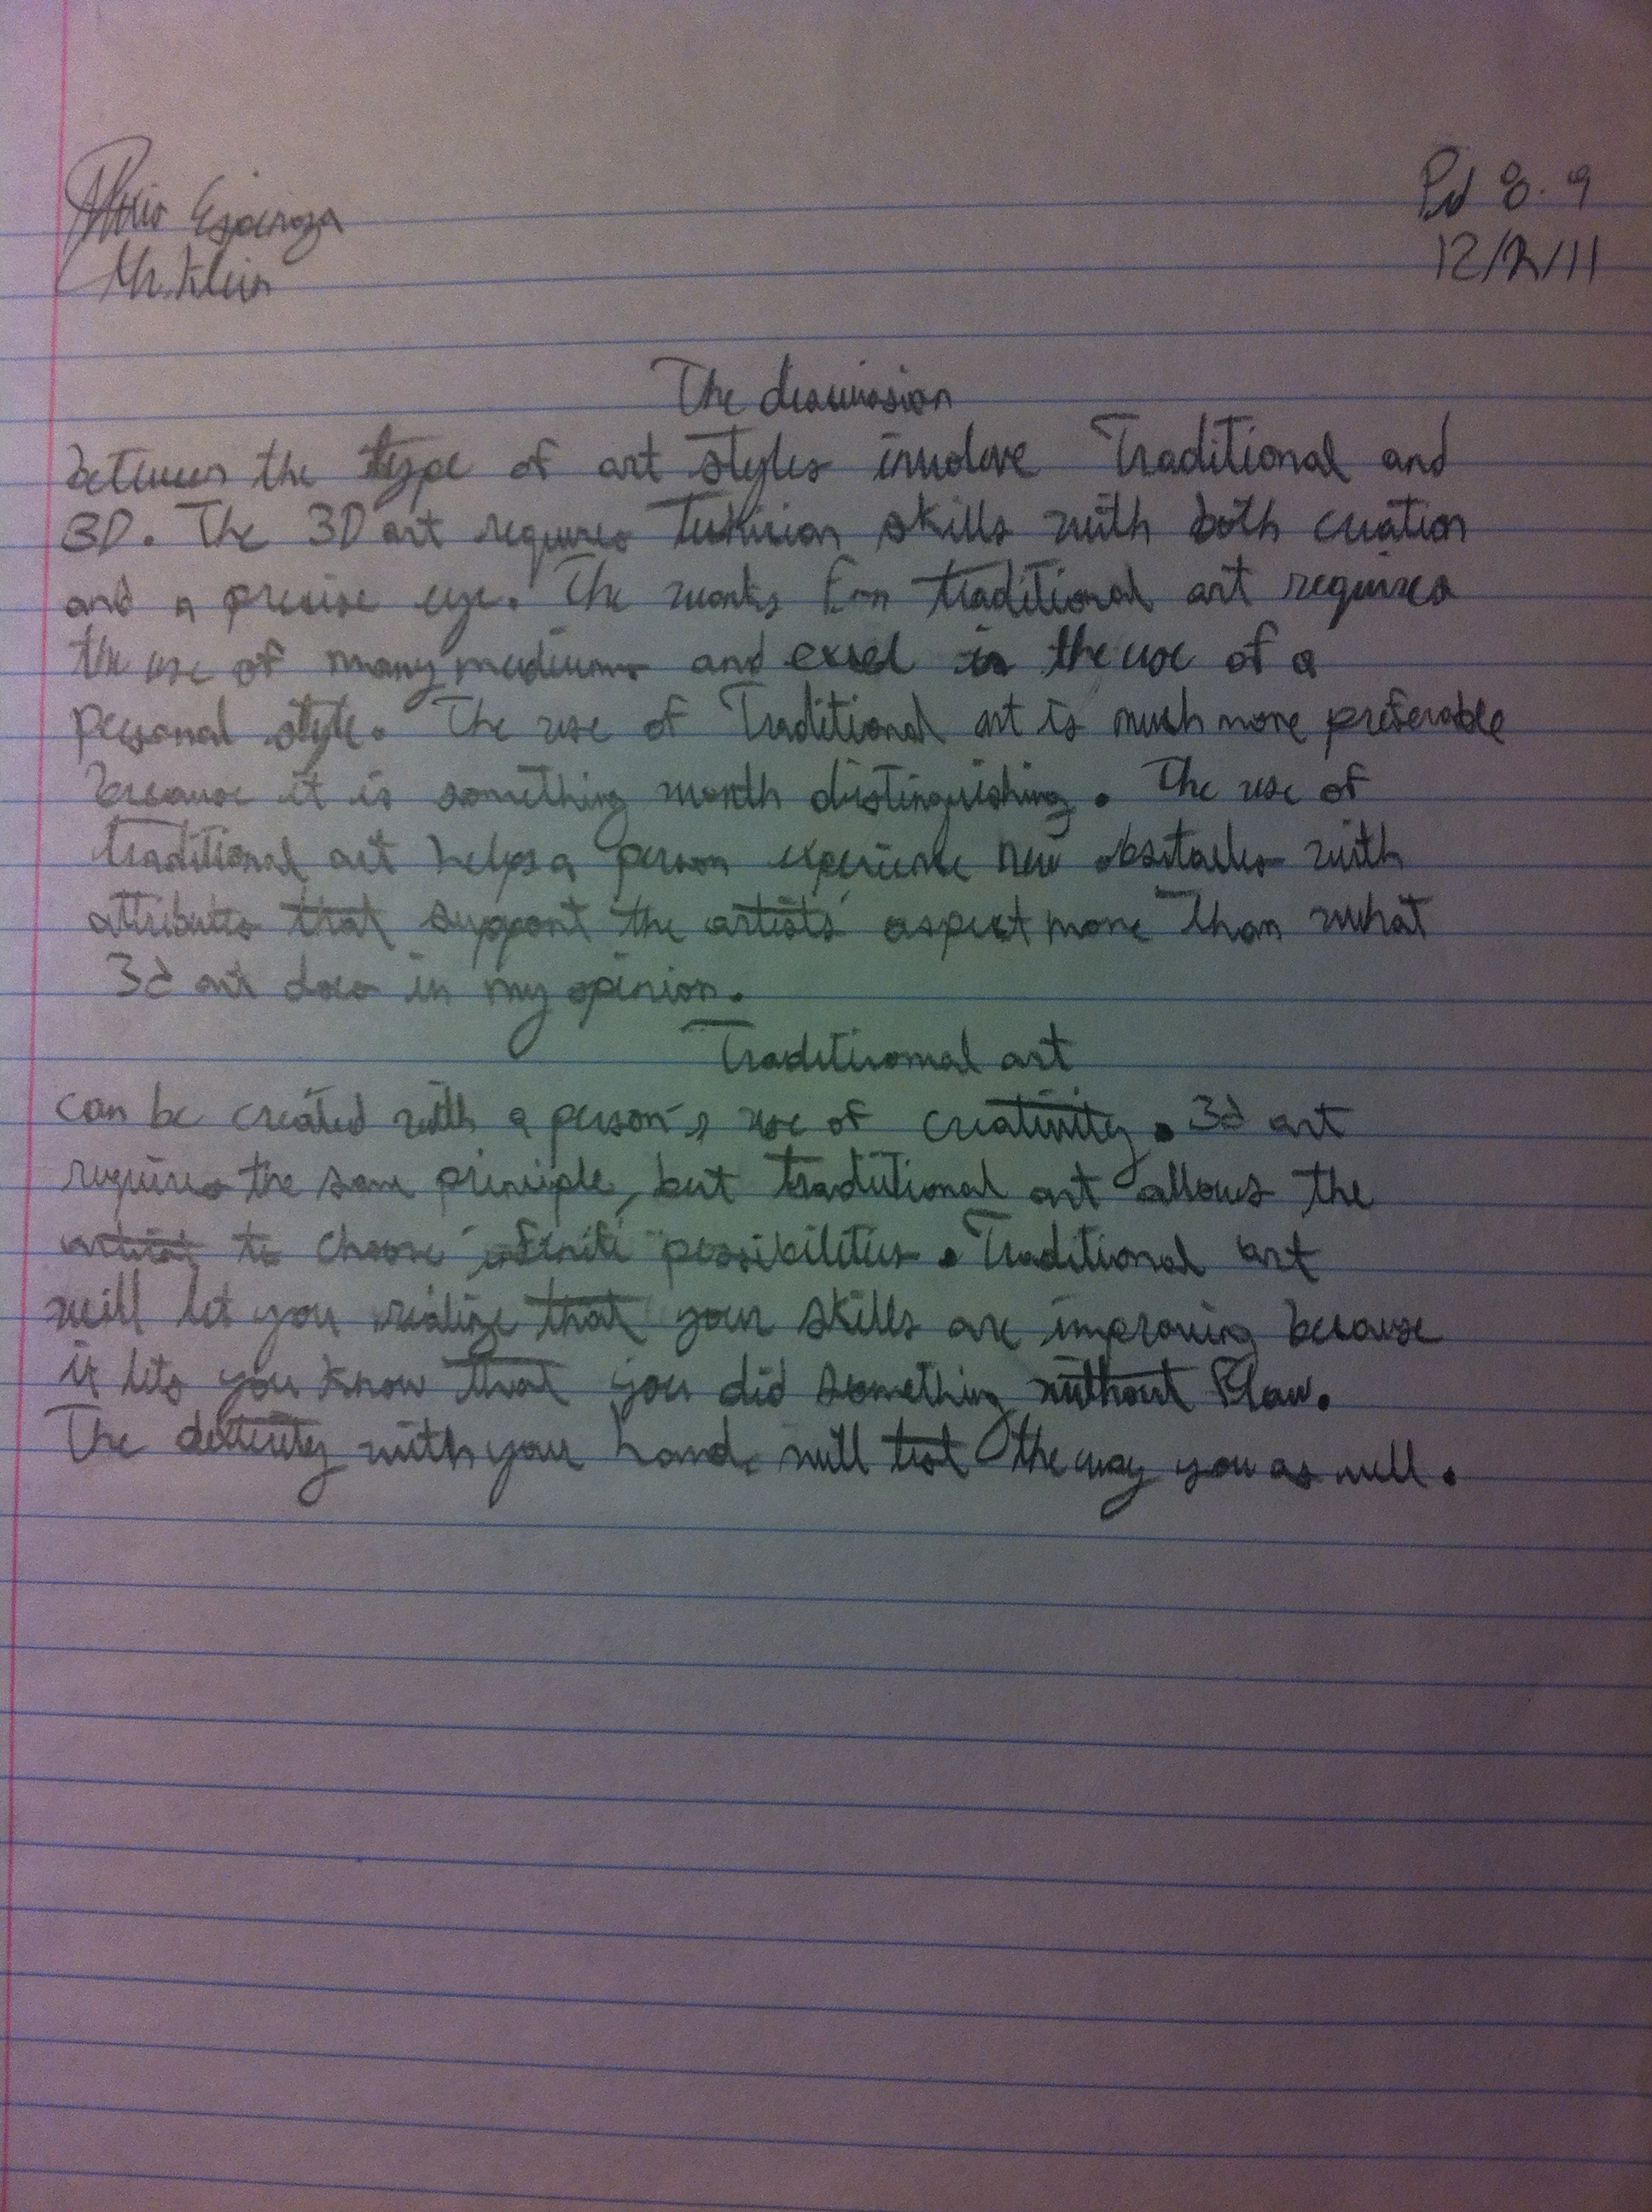 Mario Esparza
Pd 8.9
Mr. Klein
12/2/11
The
between the type of art styles involve Traditional and
3D. The 3D art requires skills with both creation
and a precise eye. The works for traditional art requires
the use of many mediums and exsel in the use of a
personal style. The use of Traditional art is much more preferable
because it is something worth distinguishing. The use of
traditional art helps a person experience new obstacles with
attributes that support the artists' aspect more than what
3d art does in my opinion.
Traditional art
can be created with a person's use of creativity. 3d art
requires the same principle, but traditional art allows the
artist to choose possibilities. Traditional art
will let you realize that your skills are improving because
it lets you know that you did something without flaw.
The dexterity with your hand will the way you as well.